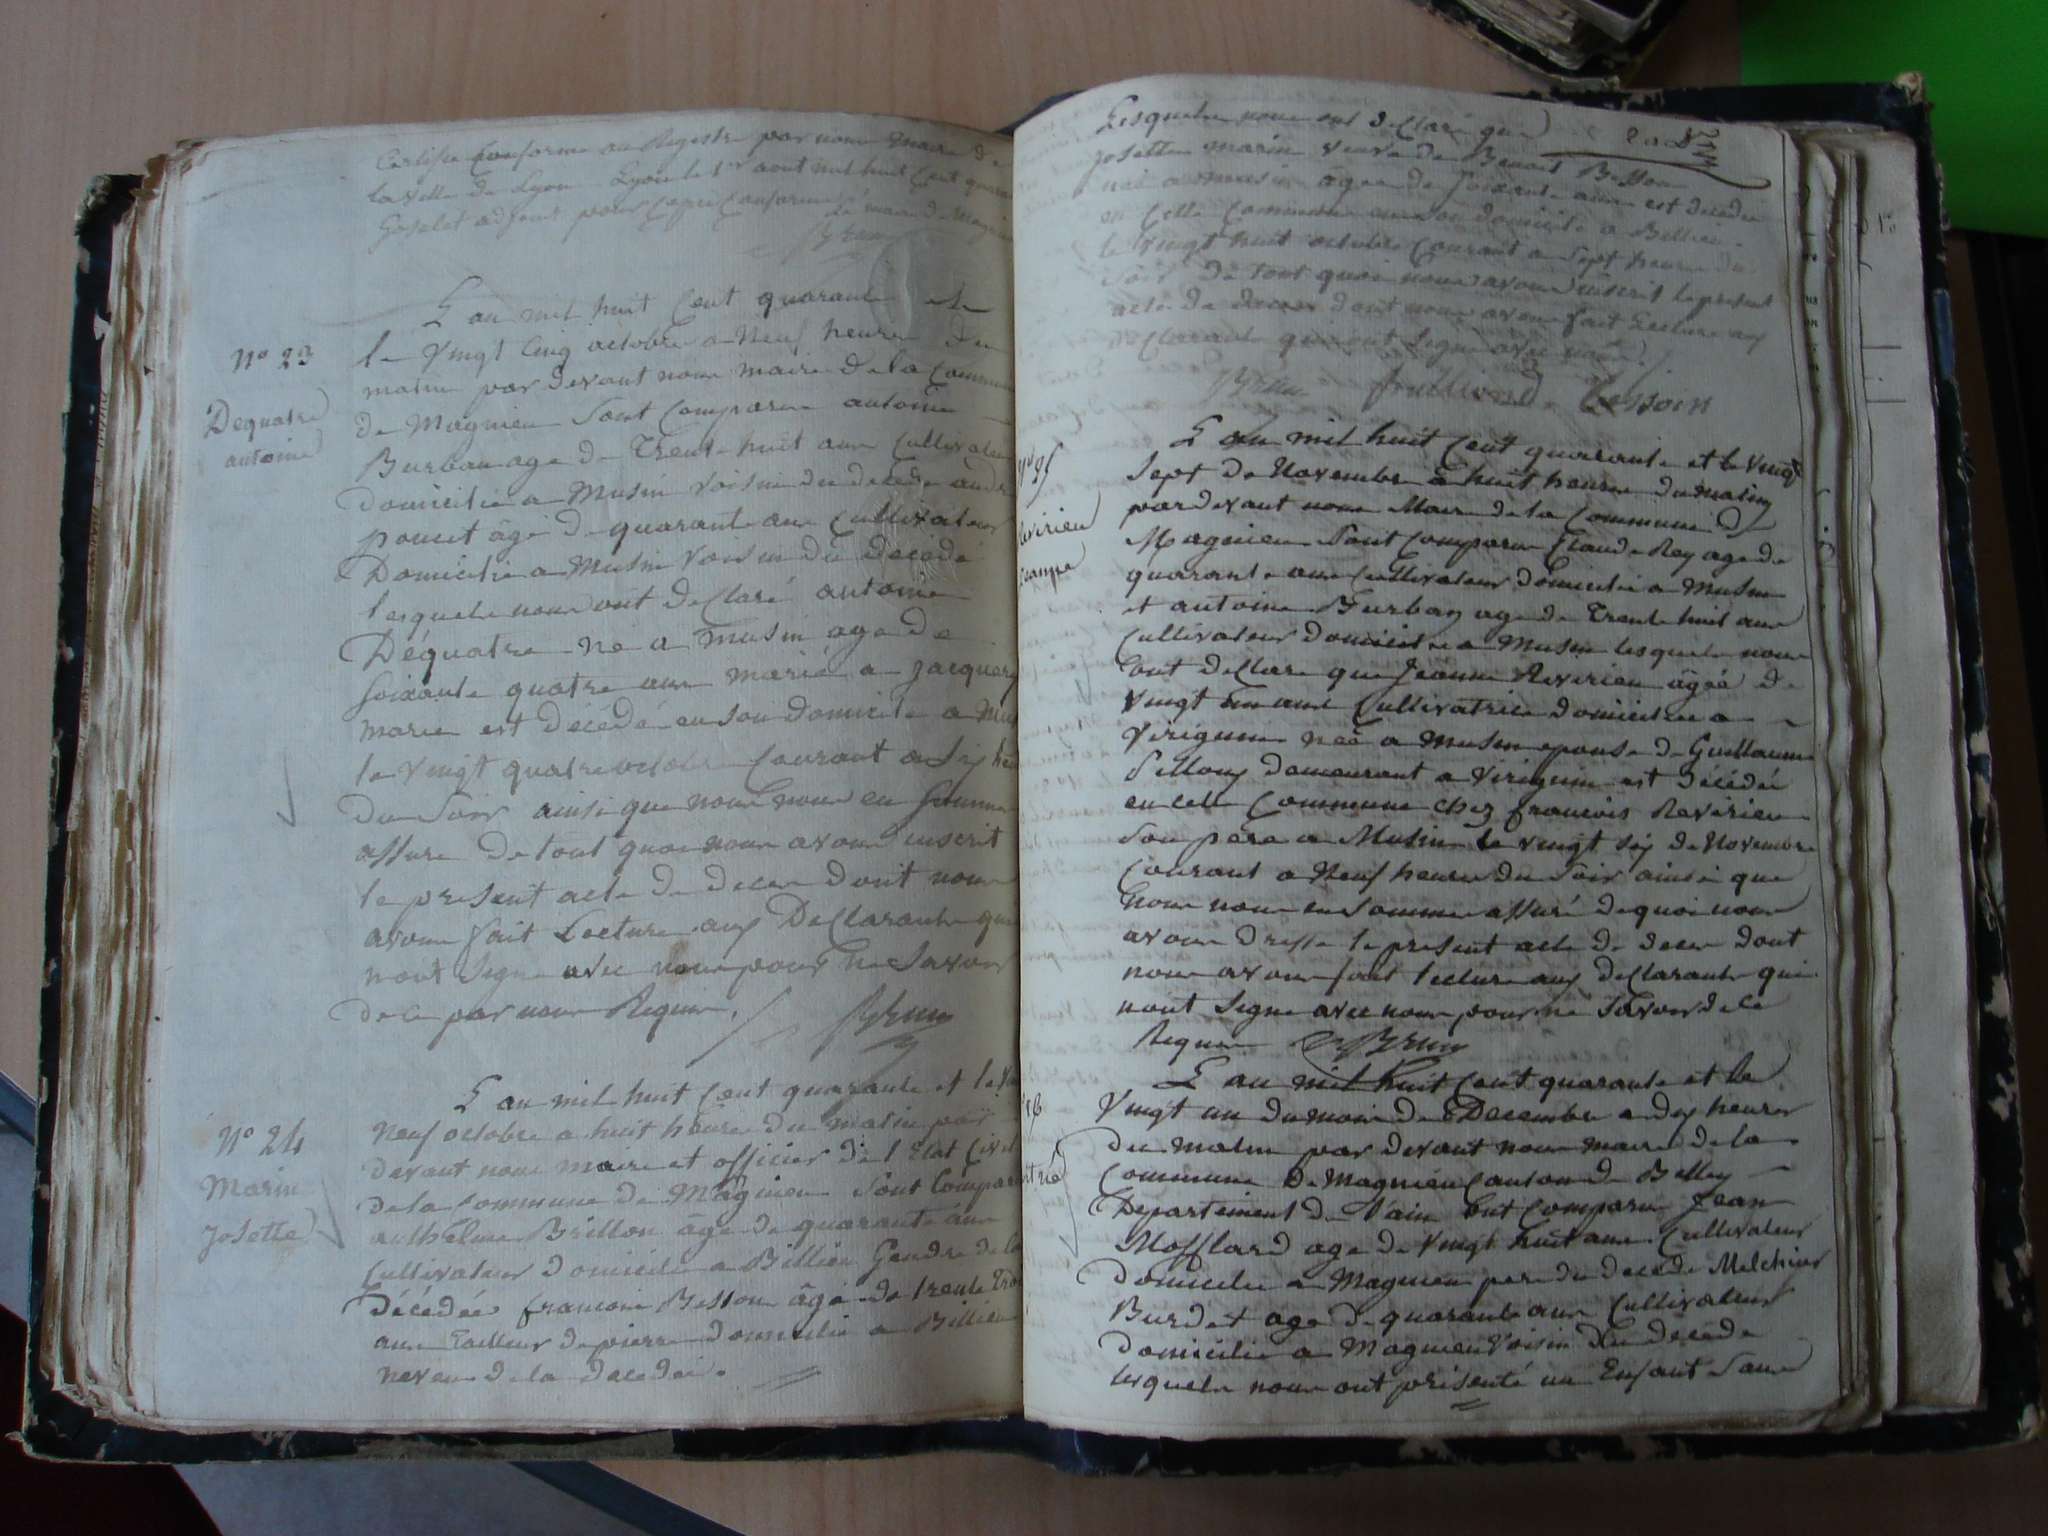 Certifié Conforme au Registre par nous Maire de
la ville de Lyon Lyon le 1er aout mil huit Cent quaran
Goselet adjoint pour Copie Conforme le maire de Magnieu
Brun
L an mil huit Cent quarante et le
N° 23
le Vingt Cinq octobre a Neuf heures du
matin par devant nous maire de la Commune
Dequatre
antoine
de Magnieu Sont Comparus antoine
Burban age de Trente huit ans Cultivateur
domicilié a Musin Voisin du décédé andre
poncet âgé de quarante ans Cultivateur
Domicilié a Musin Voisin du décédé
lesquels nous ont déClaré antoine
Déquatre né a Musin age de
soixante quatre ans marié a jacquier
marie est décédé en son domicile a Mus
le Vingt quatre octobre Courant a Six heu
du Soir ainsi que nous nous en Somme
assure de tout quoi nous avons inscrit
le present acte de deces dont nous
avons fait Lecture aux DeClarants qui
nont Signe avec nous pour ne Savoir
de ce par nous Requis. Brun
L an mil huit Cent quarante et le Vin
N° 24
Marin
Josette
Neuf octobre a huit heures du matin par
devant nous maire et officier de l Etat Civil
de la Commune de Magnieu Sont Comparus
anthelme Brillon âgé de quarante ans
Cultivateur domicilié a Billieu Gendre de la
Décédée francois Besson âgé de trente Trois
ans Tailleur de pierre domicilié a Billieu
neveu de la décédée.
Lesquels nous ont déClaré que
Josette marin veuve de Benoit Besson
née a Musin âgée de soixante ans est décédée
en Cette Commune en son domicile a Billieu
le Vingt huit octobre Courant a Sept heures du
Soir de tout quoi nous avons inscrit le présent
acte de deces dont nous avons fait Lecture aux
déClarants qui ont Signé avec nous
Brun Besson
L an mil huit Cent quarante et le Vingt
N° 25
Sept de Novembre a huit heures du matin
par devant nous Maire de la Commune de
Reverieu
Magnieu Sont Comparus Claude Rey age de
quarante ans Cultivateur domicilié a Musin
et antoine Burban age de Trente huit ans
Cultivateur domicilié a Musin lesquels nous
ont déClaré que Jeanne Reverieu âgée de
Vingt un ans Cultivatrice domiciliée a
Virignin née a Musin epouse de Guillaume
Pilloux demeurant a Virignin est décédée
en cette Commune chez francois Reverieu
Son père a Musin le vingt Six de Novembre
Courant a Neuf heures du Soir ainsi que
Nous nous en Sommes assuré de quoi nous
avons dressé le présent acte de deces dont
nous avons fait lecture aux déClarants qui
nont Signe avec nous pour ne Savoir de ce
Requis Brun
L an mil huit Cent quarante et le
Vingt un du mois de Decembre a dix heures
du matin par devant nous maire de la
Commune de Magnieu Canton de Belley
Departement de l'ain ont Comparus Jean
Mofflard age de Vingt huit ans Cultivateur
Domicilié a Magnieu pere du décédé Melchior
Burdet age de quarante ans Cultivateur
Domicilié a Magnieu Voisin du décédé
lesquels nous ont présenté un Enfant Sans